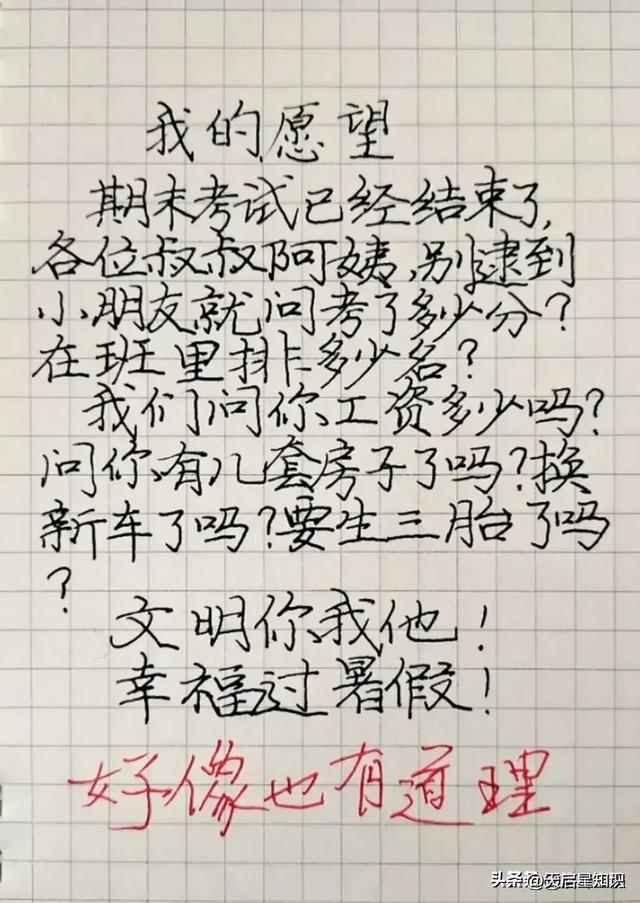 我的愿望
期末考试已经结束了,
各位叔叔阿姨,别逮到
小朋友就问考了多少分?
在班里排多少名?
我们问你工资多少吗?
问你有几套房子了吗?换
新车了吗?要生三胎了吗
?
文明你我他!
幸福过暑假!
好像也有道理
头条@天启星知识